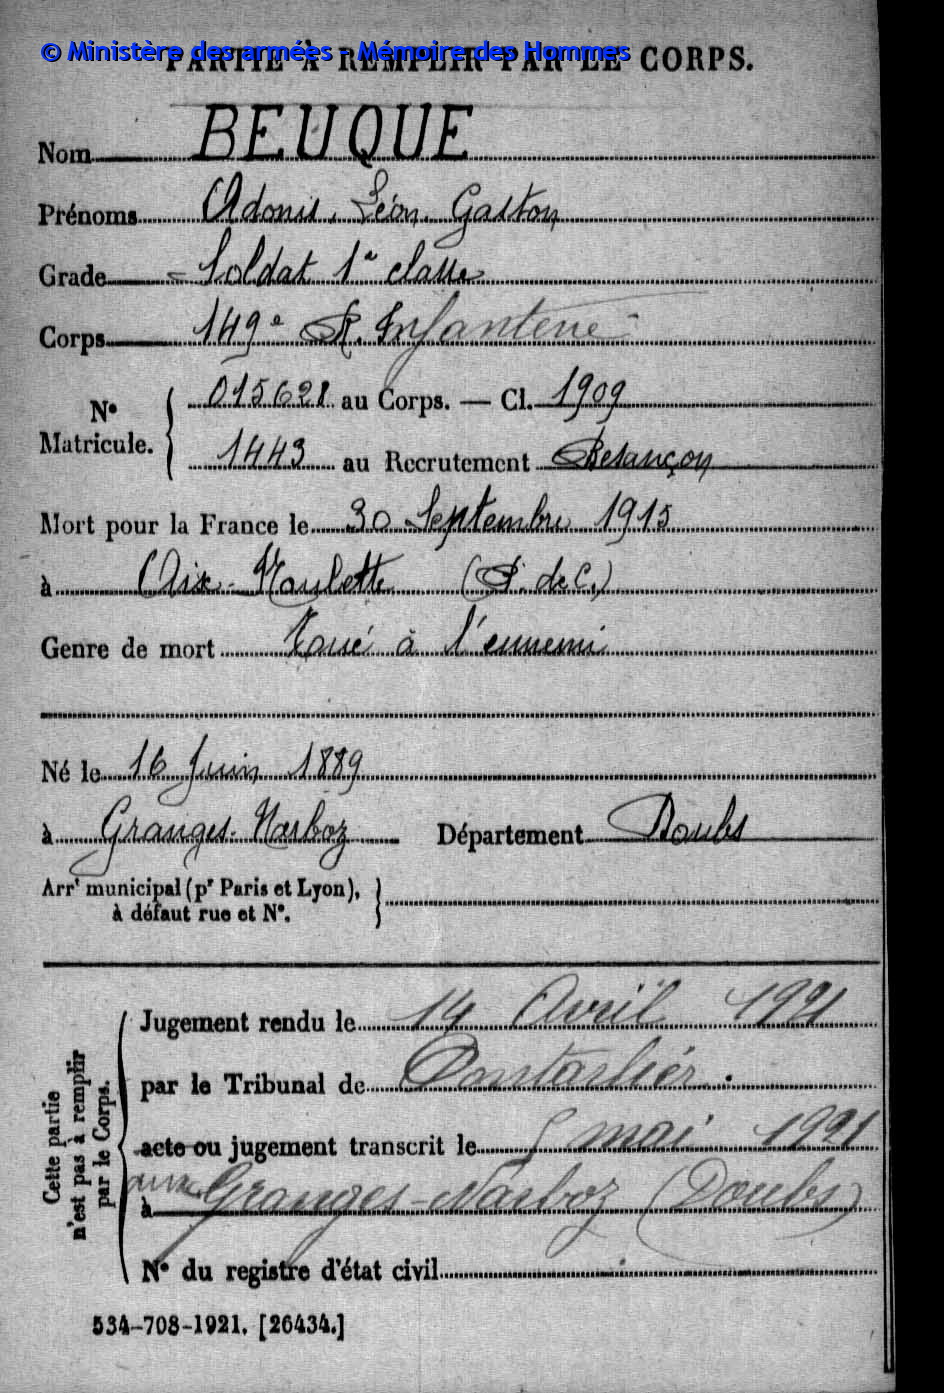 © Ministère des armées - Mémoire des Hommes
PARTIE À REMPLIR PAR LE CORPS.
Nom BEUQUE
Prénoms Adonis, Léon, Gaston
Grade Soldat 1re classe
Corps 149e R. Infanterie
No Matricule. { 015621 au Corps. — Cl. 1909
1443 au Recrutement Besançon
Mort pour la France le 30 Septembre 1915
à Aix-Noulette (P. de C.)
Genre de mort Tué à l'ennemi
Né le 16 Juin 1889
à Granges-Narboz Département Doubs
Arrt municipal (pr Paris et Lyon),
à défaut rue et No.
Cette partie
n'est pas à remplir
par le Corps.
Jugement rendu le 14 Avril 1921
par le Tribunal de Pontarlier
acte ou jugement transcrit le 5 mai 1921
aux
à Granges-Narboz (Doubs)
No du registre d'état civil
534-708-1921. [26434.]